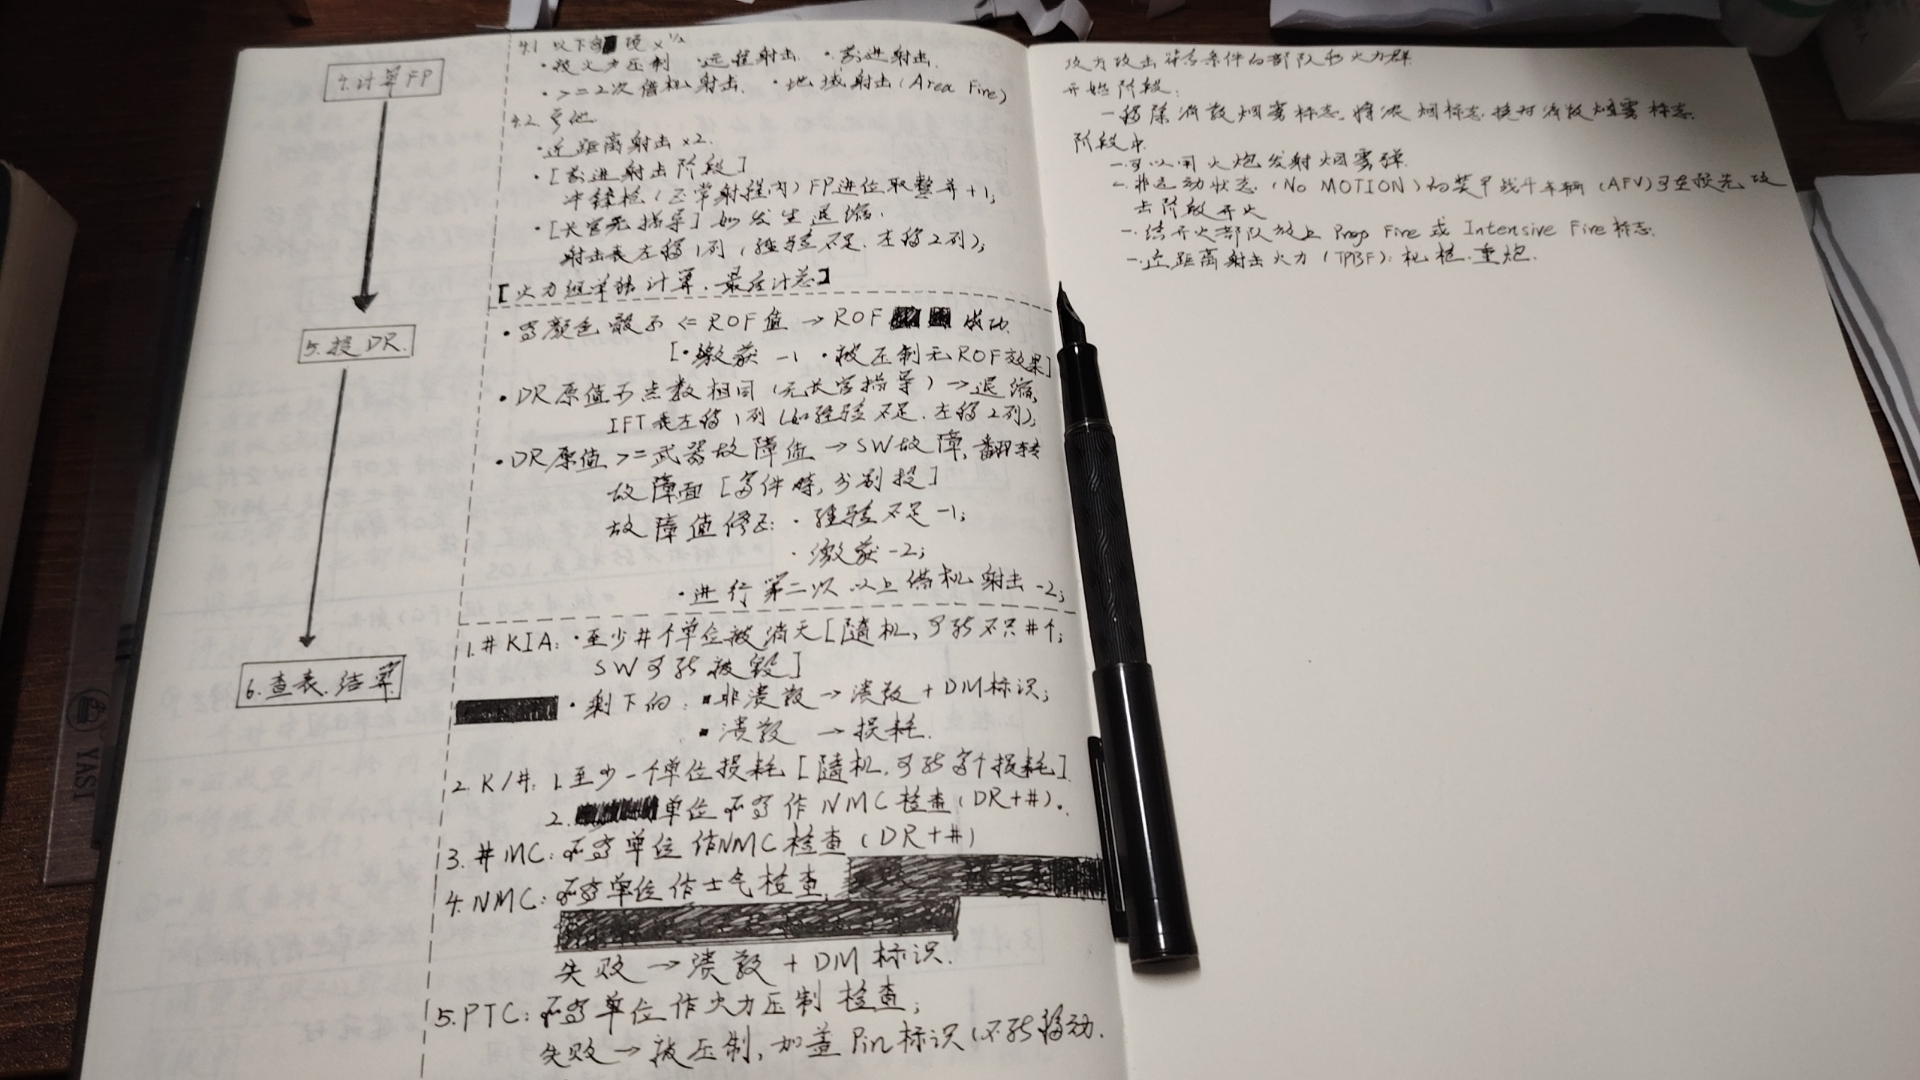 4.计算FP
4.1 以下各项 x 1/2
·被火力压制 ·远程射击 ·前进射击
·>=2次借机射击. ·地域射击(Area Fire)
4.2. 其他
·近距离射击 x2.
·[前进射击阶段]
冲锋枪(正常射程内)FP进位取整并+1;
·[长官无指导] 如发生退缩.
射击表左移1列(经验不足.左移2列);
[火力组单独计算.最后计总]
5.投DR.
·彩色骰子<=ROF值→ROF 成功.
[·缴获 -1 ·被压制无ROF效果]
·DR原值为点数相同(无长官指导)→退缩,
IFT表左移1列(如经验不足.左移2列);
·DR原值>=武器故障值→SW故障,翻转
故障面[多件时,分别投]
故障值修正:·经验不足-1;
·缴获-2;
·进行第二次以上借机射击-2;
6.查表.结算
1.#KIA:·至少#个单位被消灭[随机,可能不只#个;
SW可能被毁]
·剩下的:▪非溃散→溃散+DM标识;
▪溃散→损耗.
2.K/#:1.至少一个单位损耗[随机.可能多个损耗]
2.单位 作NMC检查(DR+#).
3.#MC:单位作NMC检查(DR+#)
4.NMC:单位作士气检查
失败→溃散+DM标识.
5.PTC:单位作火力压制检查;
失败→被压制,加盖Pin标识(不能移动.
攻方攻击符合条件的部队和火力群
开始阶段:
-移除消散烟雾标志.将浓烟标志换为消散烟雾标志.
阶段中
-.可以用火炮发射烟雾弹.
-.非运动状态(No MOTION)的装甲战斗车辆(AFV)可在预先攻
击阶段开火
-.给开火部队放上Prep Fire或Intensive Fire标志.
-.近距离射击火力(TPBF):机枪.重炮.
YAST